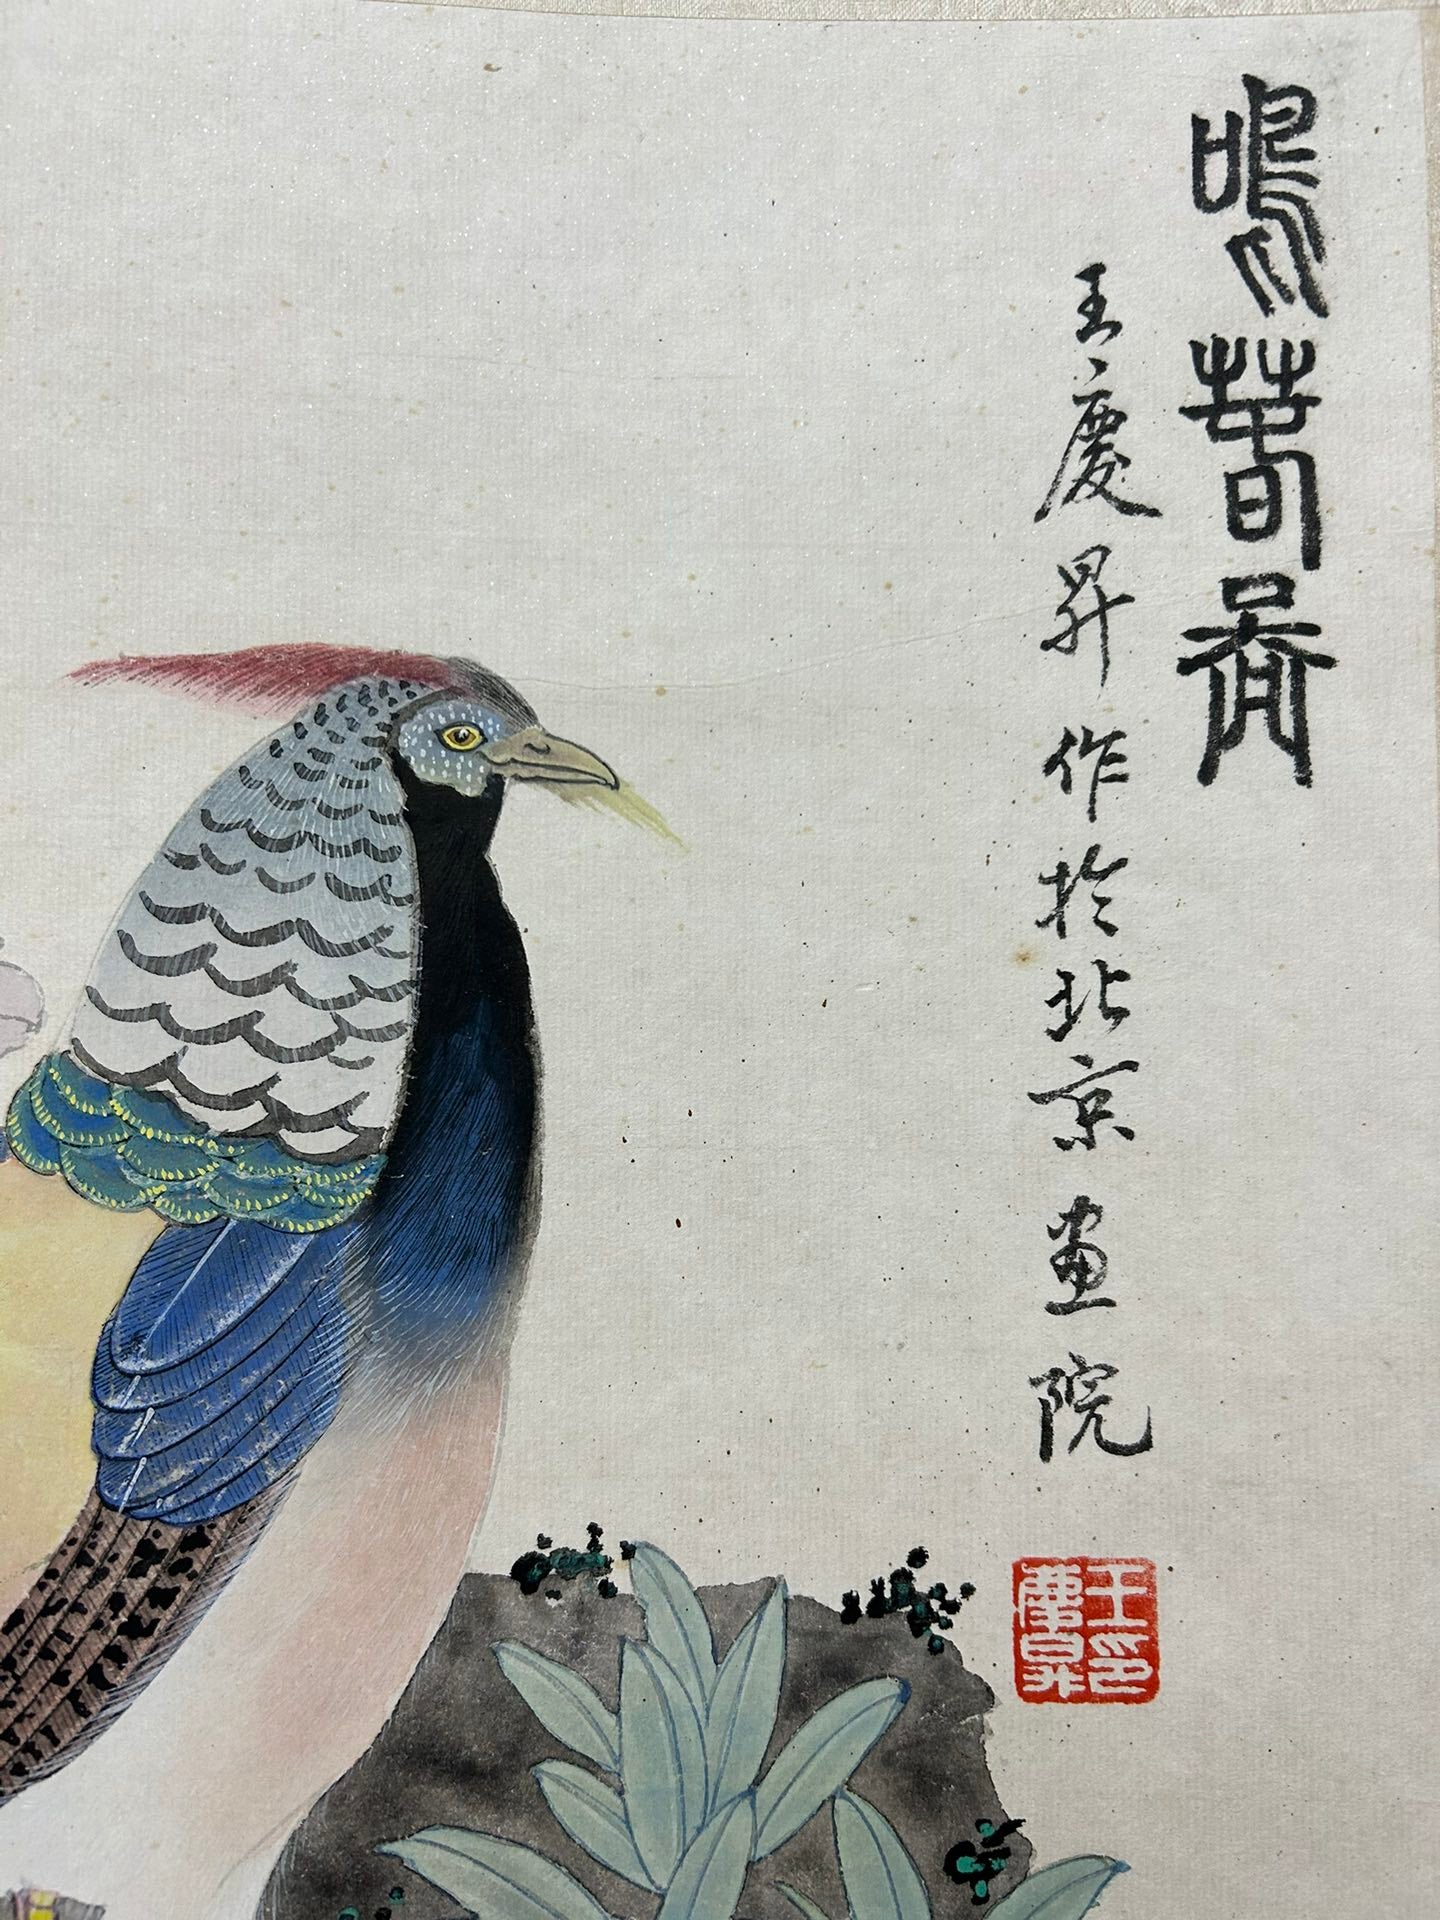 鳴春
王慶昇作於北京畫院
王印
慶昇